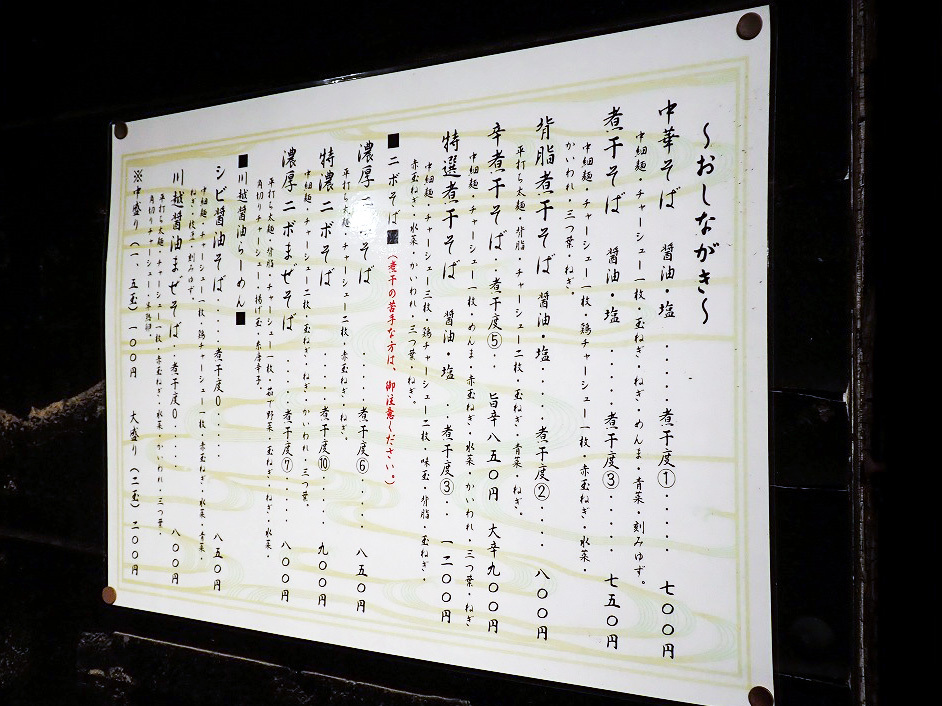 ～おしながき～
中華そば 醤油・塩．．．．．煮干度①．．．．．七〇〇円
中細麺・チャーシュー一枚・玉ねぎ・ねぎ・めんま・青菜・刻みゆず。
煮干そば 醤油・塩．．．．．煮干度③．．．．．七五〇円
中細麺・チャーシュー一枚・鶏チャーシュー一枚・赤玉ねぎ・水菜・
かいわれ・三つ葉・ねぎ。
背脂煮干そば 醤油・塩．．．．．煮干度②．．．．．八〇〇円
平打ち太麺・背脂・チャーシュー二枚・玉ねぎ・青菜・ねぎ。
辛煮干そば．．煮干度⑤．．旨辛八五〇円 大辛九〇〇円
中細麺・チャーシュー一枚・めんま・赤玉ねぎ・水菜・かいわれ・三つ葉・ねぎ
特選煮干そば 醤油・塩 煮干度③．．一二〇〇円
中細麺・チャーシュー三枚・鶏チャーシュー二枚・味玉・背脂 玉ねぎ・
赤玉ねぎ・水菜・かいわれ・三つ葉・ねぎ。
■ニボそば■（煮干の苦手な方は、御注意ください。）
濃厚ニボそば．．．．．煮干度⑥．．．．八五〇円
平打ち太麺・チャーシュー二枚・赤玉ねぎ・ねぎ。
特濃ニボそば．．．．．煮干度⑩．．．．九〇〇円
中細麺・チャーシュー二枚・玉ねぎ・ねぎ・かいわれ・三つ葉。
濃厚ニボまぜそば．．．．煮干度⑦．．．．八〇〇円
平打ち太麺・背脂・チャーシュー一枚・茹で野菜・玉ねぎ・ねぎ・水菜・
角切りチャーシュー・揚げ玉・糸唐辛子。
■川越醤油らーめん■
シビ醤油そば．．．．．煮干度０．．．．八五〇円
中細麺・チャーシュー一枚・鶏チャーシュー一枚・赤玉ねぎ・水菜・青菜・
ねぎ・刻みゆず
川越醤油まぜそば．．煮干度０．．．．八〇〇円
平打ち太麺・チャーシュー一枚・赤玉ねぎ・水菜・かいわれ・三つ葉・
角切りチャーシュー・半熟卵。
※中盛り（一、五玉）一〇〇円 大盛り（二玉）二〇〇円